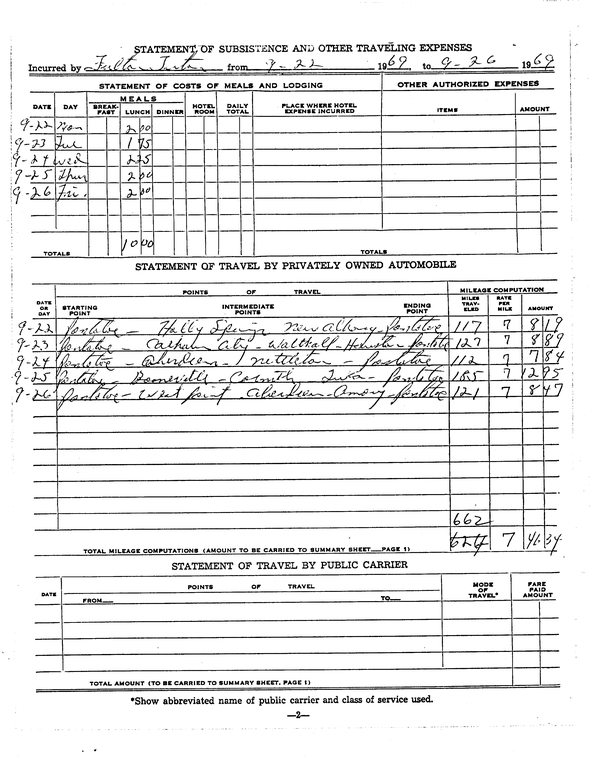 STATEMENT OF SUBSISTENCE AND OTHER TRAVELING EXPENSES
Incurred by Fulton from 9-22 1969 to 9-26 1969
STATEMENT OF COSTS OF MEALS AND LODGING OTHER AUTHORIZED EXPENSES
MEALS
DATE DAY BREAK-FAST LUNCH DINNER HOTEL ROOM DAILY TOTAL PLACE WHERE HOTEL EXPENSE INCURRED ITEMS AMOUNT
9-22 Mon 2 00
9-23 Tue 1 75
9-24 Wed 2 25
9-25 Thur 2 00
9-26 Fri. 2 00
TOTALS 10 00 TOTALS
STATEMENT OF TRAVEL BY PRIVATELY OWNED AUTOMOBILE
POINTS OF TRAVEL MILEAGE COMPUTATION
DATE OR DAY STARTING POINT INTERMEDIATE POINTS ENDING POINT MILES TRAV-ELED RATE PER MILE AMOUNT
9-22 Pontotoc - Holly Springs New Albany - Pontotoc 117 7 8 19
9-23 Pontotoc - Calhoun City - Walthall - Houston - Pontotoc 127 7 8 89
9-24 Pontotoc - Aberdeen - Nettleton - Pontotoc 112 7 7 84
9-25 Pontotoc - Booneville - Corinth Iuka - Pontotoc 185 7 12 95
9-26 Pontotoc - West Point Aberdeen - Amory - Pontotoc 121 7 8 47
662
TOTAL MILEAGE COMPUTATIONS (AMOUNT TO BE CARRIED TO SUMMARY SHEET—PAGE 1) 7 46 34
STATEMENT OF TRAVEL BY PUBLIC CARRIER
DATE POINTS OF TRAVEL MODE OF TRAVEL* FARE PAID AMOUNT
FROM— TO—
TOTAL AMOUNT (TO BE CARRIED TO SUMMARY SHEET, PAGE 1)
*Show abbreviated name of public carrier and class of service used.
—2—